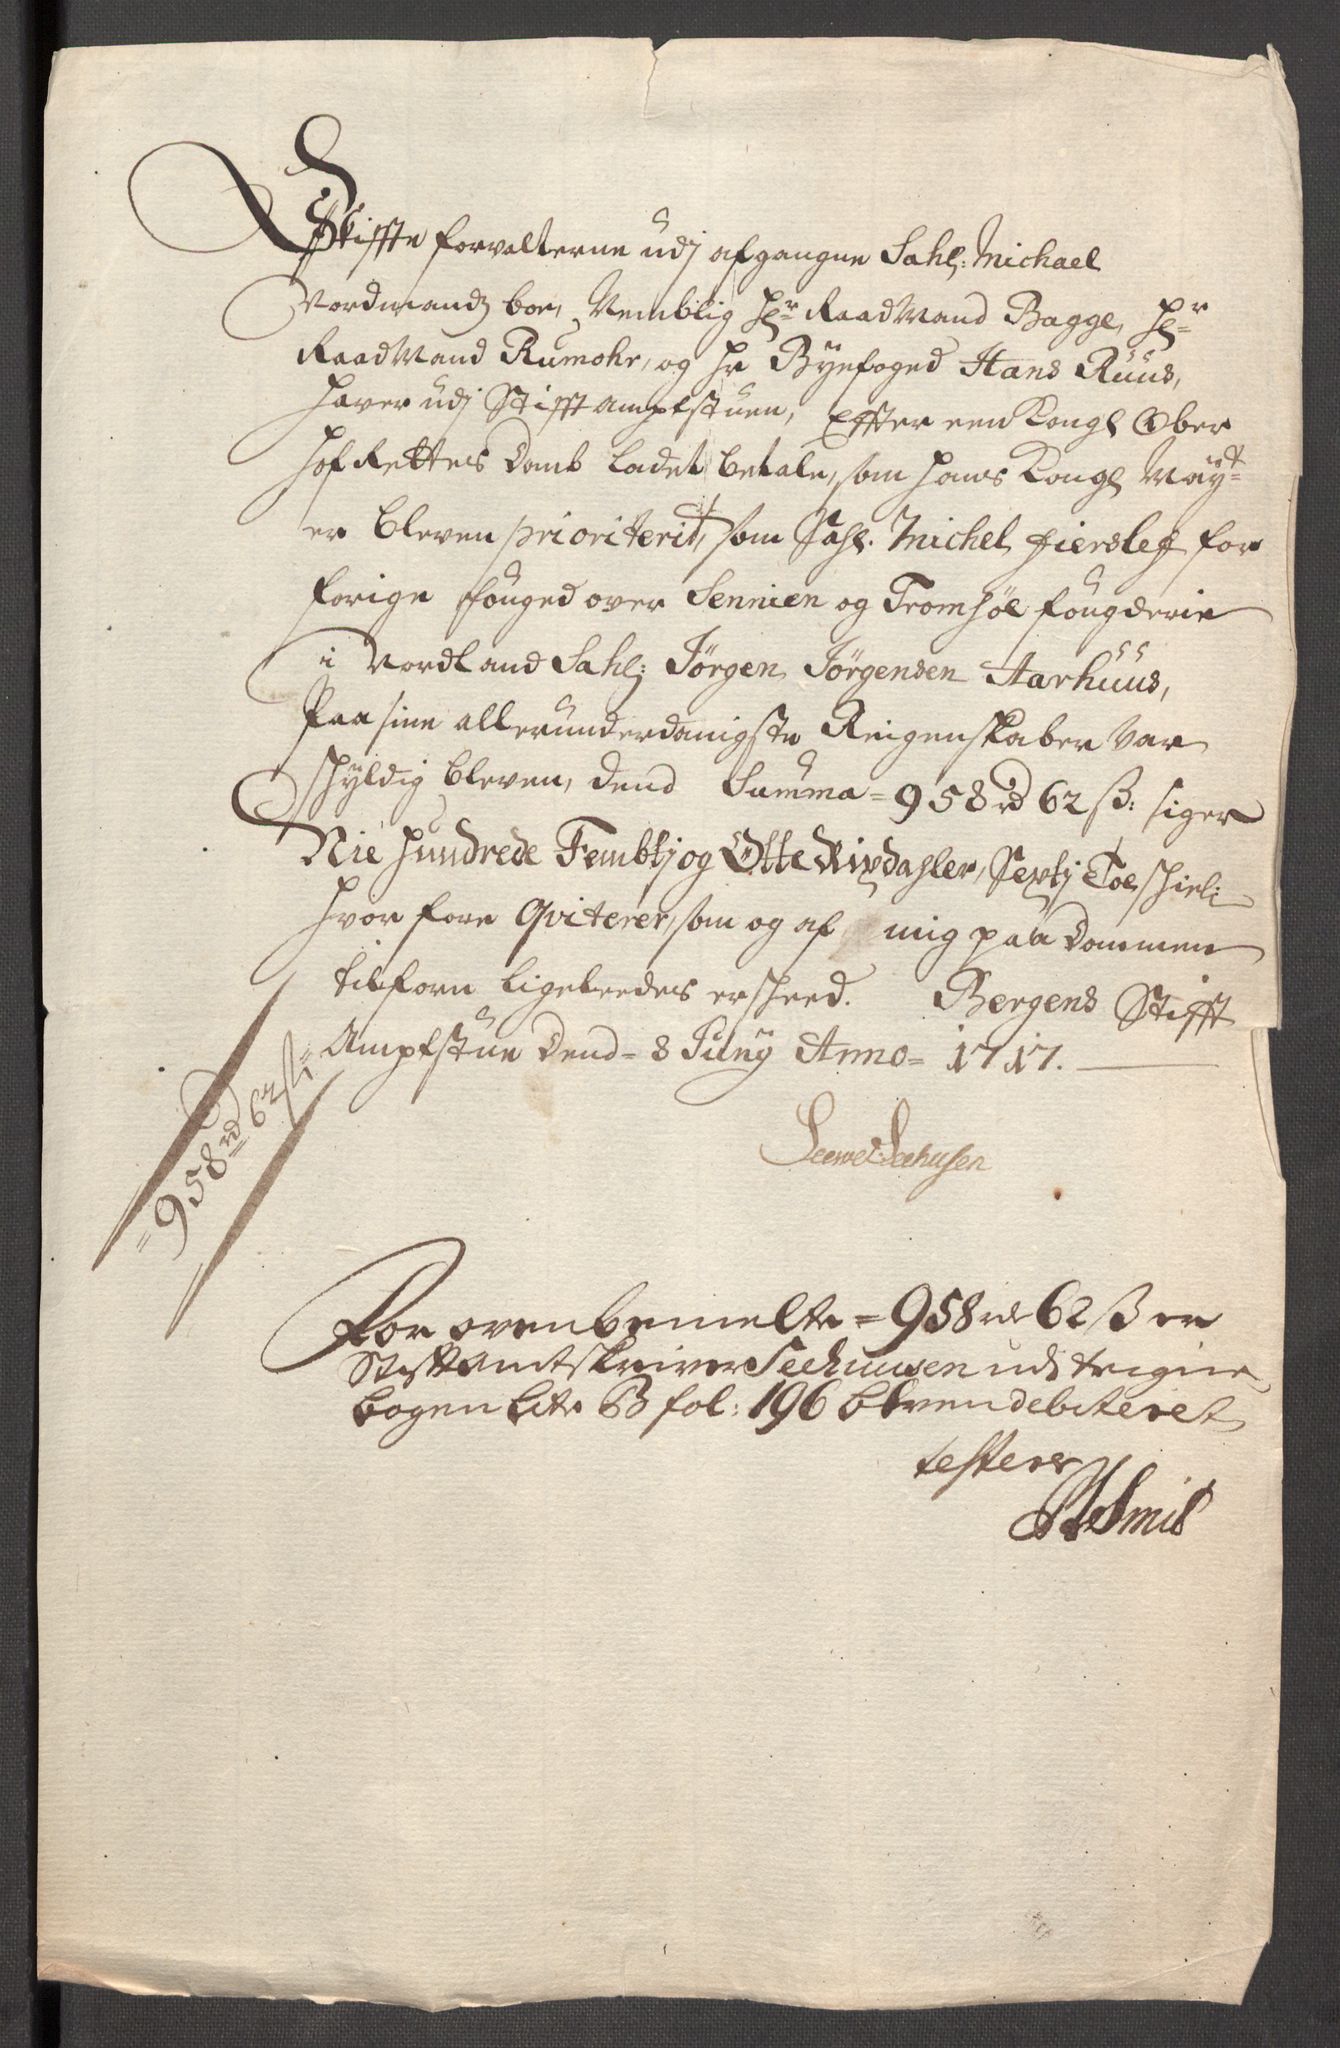 Skiffte forvalterne udj afgangne Sahl: Michael
Nordmandz boe, Nemblig Hr Raadmand Bagge, Hr
Raadmand Rumohr, og Hr Byefoged Hans Rüüs,
Haver udj Stifft ampt stuen, Effter een Kongl Ober
Hof Rettes Domb ladet betale, som Hans Kongl Mayt
er bleven prioriterit, som Sahl. Michel Fiersleff for
forige fouged over Sennien og Tromsöe fougderie
i Nordland Sahl: Jörgen Jörgensen Aarhüüs,
Paa sine allerunderdanigste Reigenskaber var
schyldig bleven, dend Summa = 958 rd 62 ß: siger
Nie hundrede Fembtj og Otte Rixdahler, Sextj Toe schiel:
hvor fore Qviterer, som og af mig paa Dommen
tilforn ligeleedes er scheed. Bergens Stifft
Amptstue Dend = 8 Juny Anno = 1717.
= 958 rd 62 ß
Seehusen
For ovenbemelte = 958 rd 62 ß er
Stiftamtskriver Seehuusen udj
bogen Litr B fol: 196 bleven debiteret
testerer
Smit